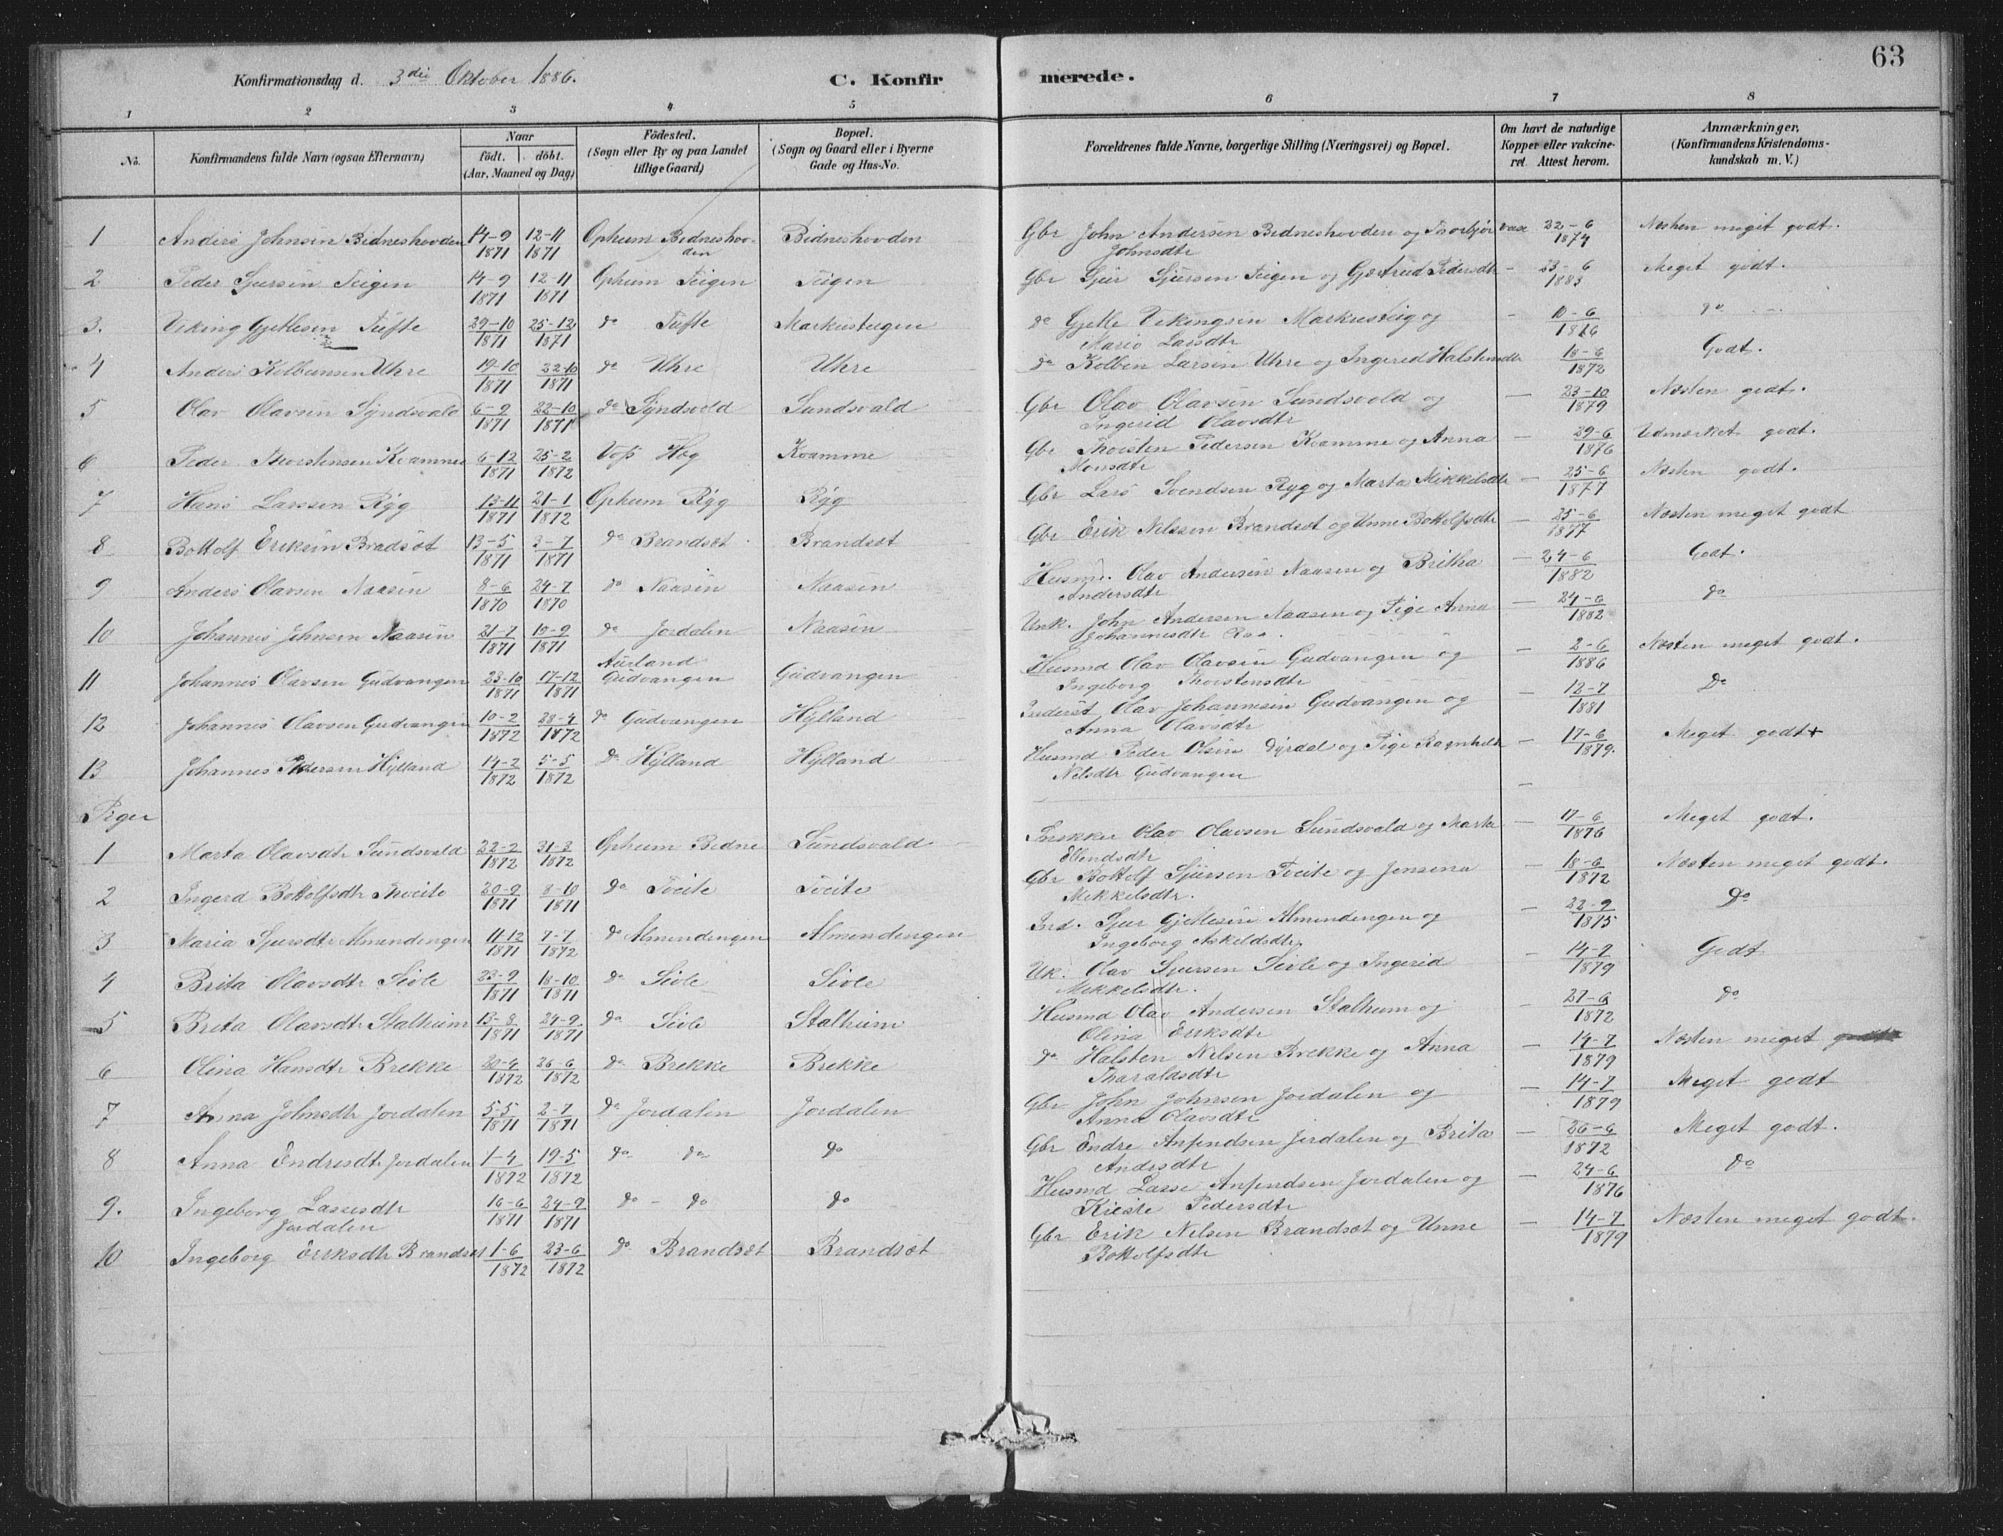 63
Konfirmationsdag d. 3die Oktober 1886. C. Konfirmerede.
1 2 3 4 5 6 7 8
No. Konfirmandens fulde Navn (ogsaa Efternavn) Naar födt. döbt. (Aar, Maaned og Dag) Födested. (Sogn eller By og paa Landet tillige Gaard) Bopæl. (Sogn og Gaard eller i Byerne Gade og Hus-No. Forældrenes fulde Navne, borgerlige Stilling (Næringsvei) og Bopæl. Om havt de naturlige Kopper eller vakcineret. Attest herom. Anmærkninger. (Konfirmandens Kristendomskundskab m. V.)
1 Anders Johnsen Bidneshovden 14-9 1871 12-11 1871 Opheim Bidneshovden Bidneshovden Gbr John Andersen Bidneshovden og Thorbjør Johnsdtr vacc 22-6 1874 Næsten meget godt.
2 Peder Sjursen Teigen 14-9 1871 12-11 1871 Opheim Teigen Teigen Gbr Sjur Sjursen Teigen og Gjertrud Pedersdtr - 23-6 1883 Meget godt.
3. Viking Gjetlesen Tufte 29-10 1871 25-12 1871 do Tufte Markusteigen do Gjetle Vikingsen Markusteig og Mario Larsdtr - 10-6 1876 do
4 Anders Kolbensen Uhre 19-10 1871 22-10 1871 do Uhre Uhre do Kolben Larsen Uhre og Ingerid Halstensdtr 18-6 1872 Godt.
5 Olav Olavsen Syndsvald 6-9 1871 22-10 1871 do Syndvold Sundsvald Gbr Olav Olavsen Sundsvold og Ingerid Olavsdtr - 23-10 1879 Næsten godt.
6 Peder Thorstensen Kvamme 6-12 1871 25-2 1872 Voss Høg Kvamme Gbr Thorsten Pedersen Kvamme og Anna Monsdtr - 29-6 1876 Udmærket godt.
7 Hans Larssen Ryg 13-11 1871 21-1 1872 Opheim Ryg Ryg Gbr Lars Svendsen Ryg og Marta Mikkelsdtr 25-6 1877 Næsten godt.
8 Bottolf Eriksen Bradsæt 13-5 1871 3-7 1871 do Brandsæt Brandsæt Gbr Erik Nelssen Brandsæt og Unne Bottolfsdtr 25-6 1877 Næsten meget godt
9 Anders Olavsen Naasen 8-6 1870 24-7 1870 do Naasen Naasen Husm. Olav Andersen Naasen og Britha Andersdtr - 24-6 1882 Godt.
10 Johannes Johnsen Naasen 21-7 1871 10-9 1871 do Jordalen Naasen Unk. John Andersen Naasen og Pige Anna Johannesdtr - 24-6 1882 do
11 Johannes Olavsen Gudvangen 23-10 1871 17-12 1871 Aurland Gudvangen Gudvangen Husmd Olav Olavsen Gudvangen og Ingeborg Thorstensdtr - 2-6 1886 Næsten meget godt.
12 Johannes Olavsen Gudvangen 10-2 1872 28-4 1872 do Gudvangen Hylland Olav Johannesen Gudvangen og Anna Olavsdtr - 12-7 1881 Do
13 Johannes Pedersen Hylland 14-2 1872 5-5 1872 do Hylland Hylland Husmd Peder Olsen Dyrdal og Pige Ragnhild Nelsdtr Gudvangen - 17-6 1879. Meget godt +
Piger
1 Marta Olavsdtr Sundsvald 22-2 1872 31-3 1872 Opheim Bidne Sundsvald Olav Olavsen Sundsvald og Marta Ellendsdtr - 17-6 1876 Meget godt.
2 Ingerd Bottolfsdtr Tveite 20-9 1871 8-10 1871 do Tveite Tveite Gbr Bottolf Sjursen Tveite og Jensena Mikkelsdtr. - 18-6 1872 Næsten meget godt.
3 Maria Sjursdtr Almendengen 11-12 1871 7-7 1872 do Almendengen Almendengen Ind. Sjur Gjetlesen Almendengen og Ingeborg Askeldsdtr. - 22-9 1875 Do
4 Brita Olavsdtr Sivle 23-9 1871 18-10 1871 do Sivle Sivle Uk. Olav Sjursen Sivle og Ingerid Mikkelsdtr. - 14-7 1879 Godt
5 Brita Olavsdtr Stalheim 13-8 1871 24-9 1871 do Sivle Stalheim Husmd Olav Andersen Stalheim og Olina Eriksdtr - 27-6 1872 do
6 Olina Hansdtr Brekke 20-4 1872 26-6 1872 do Brekke Brekke do Halsten Nelsen Brekke og Anna Tharaldsdtr - 14-7 1879 Næsten meget godt
7 Anna Johnsdtr Jordalen 5-5 1871 2-7 1871 do Jordalen Jordalen Gbr John Johnsen Jordalen og Anna Olavsdtr - 14-7 1879 Meget godt
8 Anna Endresdtr Jordalen 1-4 1872 19-5 1872 do do do Gbr Endre Anfindsen Jordalen og Brita Andersdtr - 26-6 1872 Meget godt.
9. Ingeborg Lassesdtr Jordalen 16-6 1871 24-9 1871 do - do do Husmd Lasse Anfindsen Jordalen og Kirste Pedersdtr - 24-6 1876 Do
10 Ingeborg Eriksdtr Brandset 1-6 1872 23-6 1872 do Brandsæt Brandsæt Gbr Erik Nelsen Brandsæt og Unne Bottolfsdtr - 14-7 1879 Næsten meget godt.